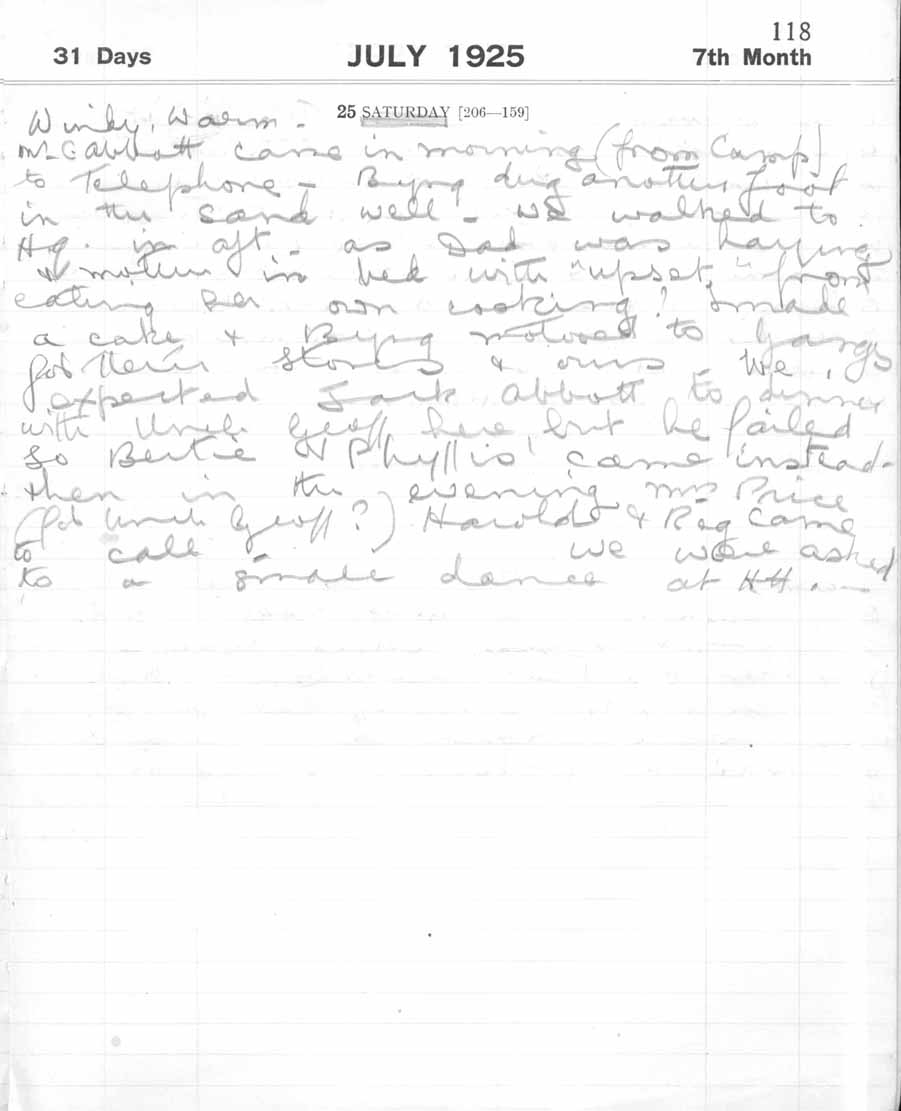 118
31 Days JULY 1925 7th Month
25 SATURDAY [206—159]
Windy, Warm -
Mr C Abbott came in morning (from Camp)
to Telephone - Byng dug another foot
in the sand well - we walked to
Hq. in aft - as Dad was haying
& mother in bed with "upset," from
eating her own cooking? I made
a cake & Byng motored to Gangs
for their stores & ours - We
expected Jack Abbott to dinner
with Uncle Geoff here but he failed
so Bertie & Phyllis came instead -
then in the evening Mrs Price
(for Uncle Geoff?) Harold & Reg came
to call we were asked
to a small dance at HH. -